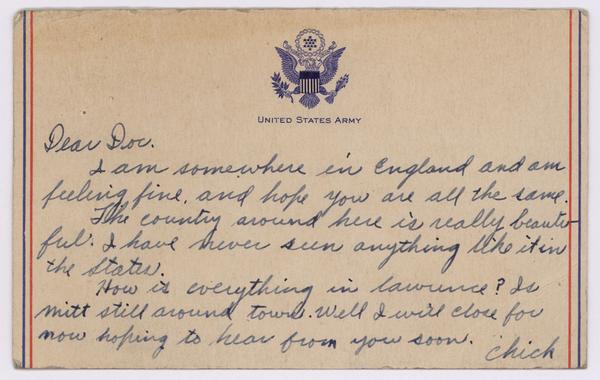 UNITED STATES ARMY
Dear Doc.
I am somewhere in England and am
feeling fine, and hope you are all the same.
The country around here is really beauti-
ful. I have never seen anything like it in
the states.
How is everything in lawrence? Is
mitt still around town. Well I will close for
now hoping to hear from you soon.
Chick